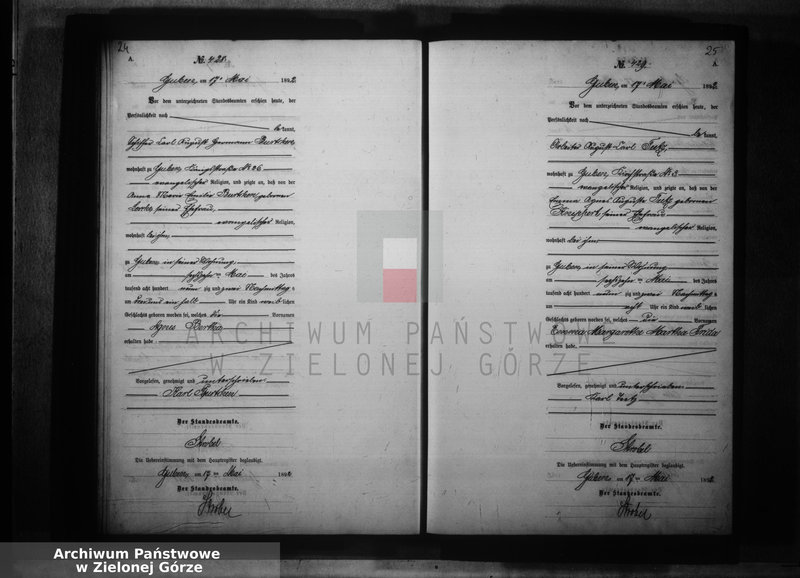 24
A.
№ 428.
Guben am 17ten Mai 1892
Vor dem unterzeichneten Standesbeamten erschien heute, der
Persönlichkeit nach
bekannt,
Carl August Hermann
wohnhaft zu Guben
evangelischer Religion, und zeigte an, daß von der
Anna Marie Emilie geborenen
seiner Ehefrau,
evangelischer Religion,
wohnhaft bei ihm,
zu Guben in seiner Wohnung
am Mai des Jahres
tausend acht hundert neunzig und zwei Nachmittags
um ein halb Uhr ein Kind weiblichen
Geschlechts geboren worden sei, welches die Vornamen
Agnes Bertha
erhalten habe
Vorgelesen, genehmigt und unterschrieben
Karl
Der Standesbeamte.
Strobel
Die Uebereinstimmung mit dem Hauptregister beglaubigt.
Guben am 17ten Mai 1892
Der Standesbeamte.
Strobel
25
A.
№ 429.
Guben am 17ten Mai 1892
Vor dem unterzeichneten Standesbeamten erschien heute, der
Persönlichkeit nach
bekannt,
Arbeiter August Carl
wohnhaft zu Guben,
evangelischer Religion, und zeigte an, daß von der
Emma Agnes Auguste geborenen
seiner Ehefrau
evangelischer Religion,
wohnhaft bei ihm
zu Guben in seiner Wohnung
am Mai des Jahres
tausend acht hundert neunzig und zwei Nachmittags
um acht Uhr ein Kind weiblichen
Geschlechts geboren worden sei, welches die Vornamen
Emma Margarethe Martha Frida
erhalten habe
Vorgelesen, genehmigt und unterschrieben
Karl
Der Standesbeamte.
Strobel
Die Uebereinstimmung mit dem Hauptregister beglaubigt.
Guben am 17ten Mai 1892
Der Standesbeamte.
Strobel
ARCHIWUM PAŃSTWOWE
W ZIELONEJ GÓRZE
Archiwum Państwowe
w Zielonej Górze